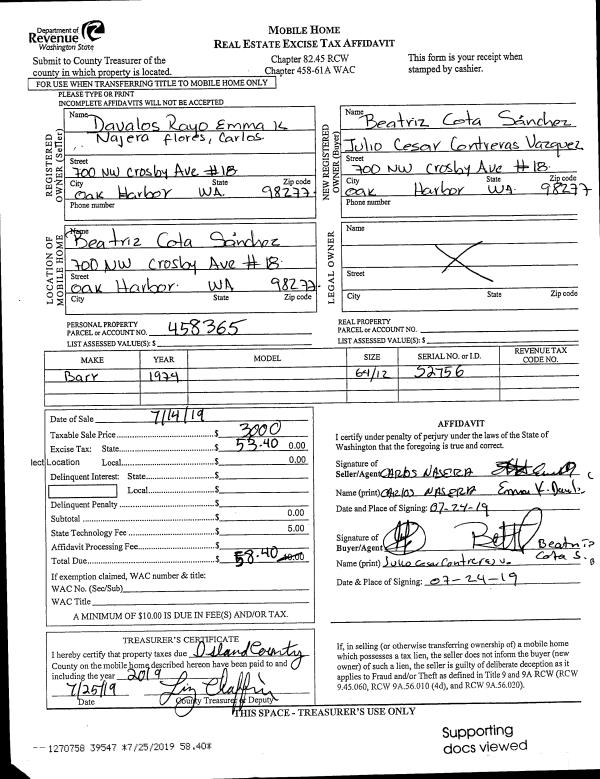 Department of
Revenue
Washington State
MOBILE HOME
REAL ESTATE EXCISE TAX AFFIDAVIT
Submit to County Treasurer of the
county in which property is located.
Chapter 82.45 RCW
Chapter 458-61A WAC
This form is your receipt when
stamped by cashier.
FOR USE WHEN TRANSFERRING TITLE TO MOBILE HOME ONLY
PLEASE TYPE OR PRINT
INCOMPLETE AFFIDAVITS WILL NOT BE ACCEPTED
REGISTERED OWNER (Seller)
Name
Davalos Rayo Emma K
Najera flores, Carlos
Street
700 NW Crosby Ave #18
City State Zip code
Oak Harbor WA. 98277
Phone number
NEW REGISTERED OWNER (Buyer)
Name
Beatriz Cota Sánchez
Julio Cesar Contreras Vazquez
Street
700 NW Crosby Ave #18
City State Zip code
Oak Harbor WA. 98277
Phone number
LOCATION OF MOBILE HOME
Name
Beatriz Cota Sánchez
700 NW Crosby Ave #18.
Street
Oak Harbor. WA 98277.
City State Zip code
LEGAL OWNER
Name
Street
City State Zip code
PERSONAL PROPERTY
PARCEL or ACCOUNT NO. 458365
LIST ASSESSED VALUE(S): $
REAL PROPERTY
PARCEL or ACCOUNT NO.
LIST ASSESSED VALUE(S): $
MAKE YEAR MODEL SIZE SERIAL NO. or I.D. REVENUE TAX CODE NO.
Barr 1974 64/12 S2756
Date of Sale 7/14/19
Taxable Sale Price $ 3000
Excise Tax: State $ 53.40 0.00
lect Location Local $ 0.00
Delinquent Interest: State $
Local $
Delinquent Penalty $
Subtotal $ 0.00
State Technology Fee $ 5.00
Affidavit Processing Fee $
Total Due $ 58.40 10.00
If exemption claimed, WAC number & title:
WAC No. (Sec/Sub)
WAC Title
A MINIMUM OF $10.00 IS DUE IN FEE(S) AND/OR TAX.
AFFIDAVIT
I certify under penalty of perjury under the laws of the State of
Washington that the foregoing is true and correct.
Signature of
Seller/Agent CARLOS NAJERA
Name (print) CARLOS NAJERA
Date and Place of Signing: 07-24-19
Signature of
Buyer/Agent Beatriz
Cota S.
Name (print) Julio Cesar Contreras V.
Date & Place of Signing: 07-24-19
TREASURER'S CERTIFICATE
I hereby certify that property taxes due Island County
County on the mobile home described hereon have been paid to and
including the year 2019
7/25/19 Liz Claffin
Date County Treasurer or Deputy
If, in selling (or otherwise transferring ownership of) a mobile home
which possesses a tax lien, the seller does not inform the buyer (new
owner) of such a lien, the seller is guilty of deliberate deception as it
applies to Fraud and/or Theft as defined in Title 9 and 9A RCW (RCW
9.45.060, RCW 9A.56.010 (4d), and RCW 9A.56.020).
THIS SPACE - TREASURER'S USE ONLY
Supporting
docs viewed
--1270758 39547 *7/25/2019 58.40*